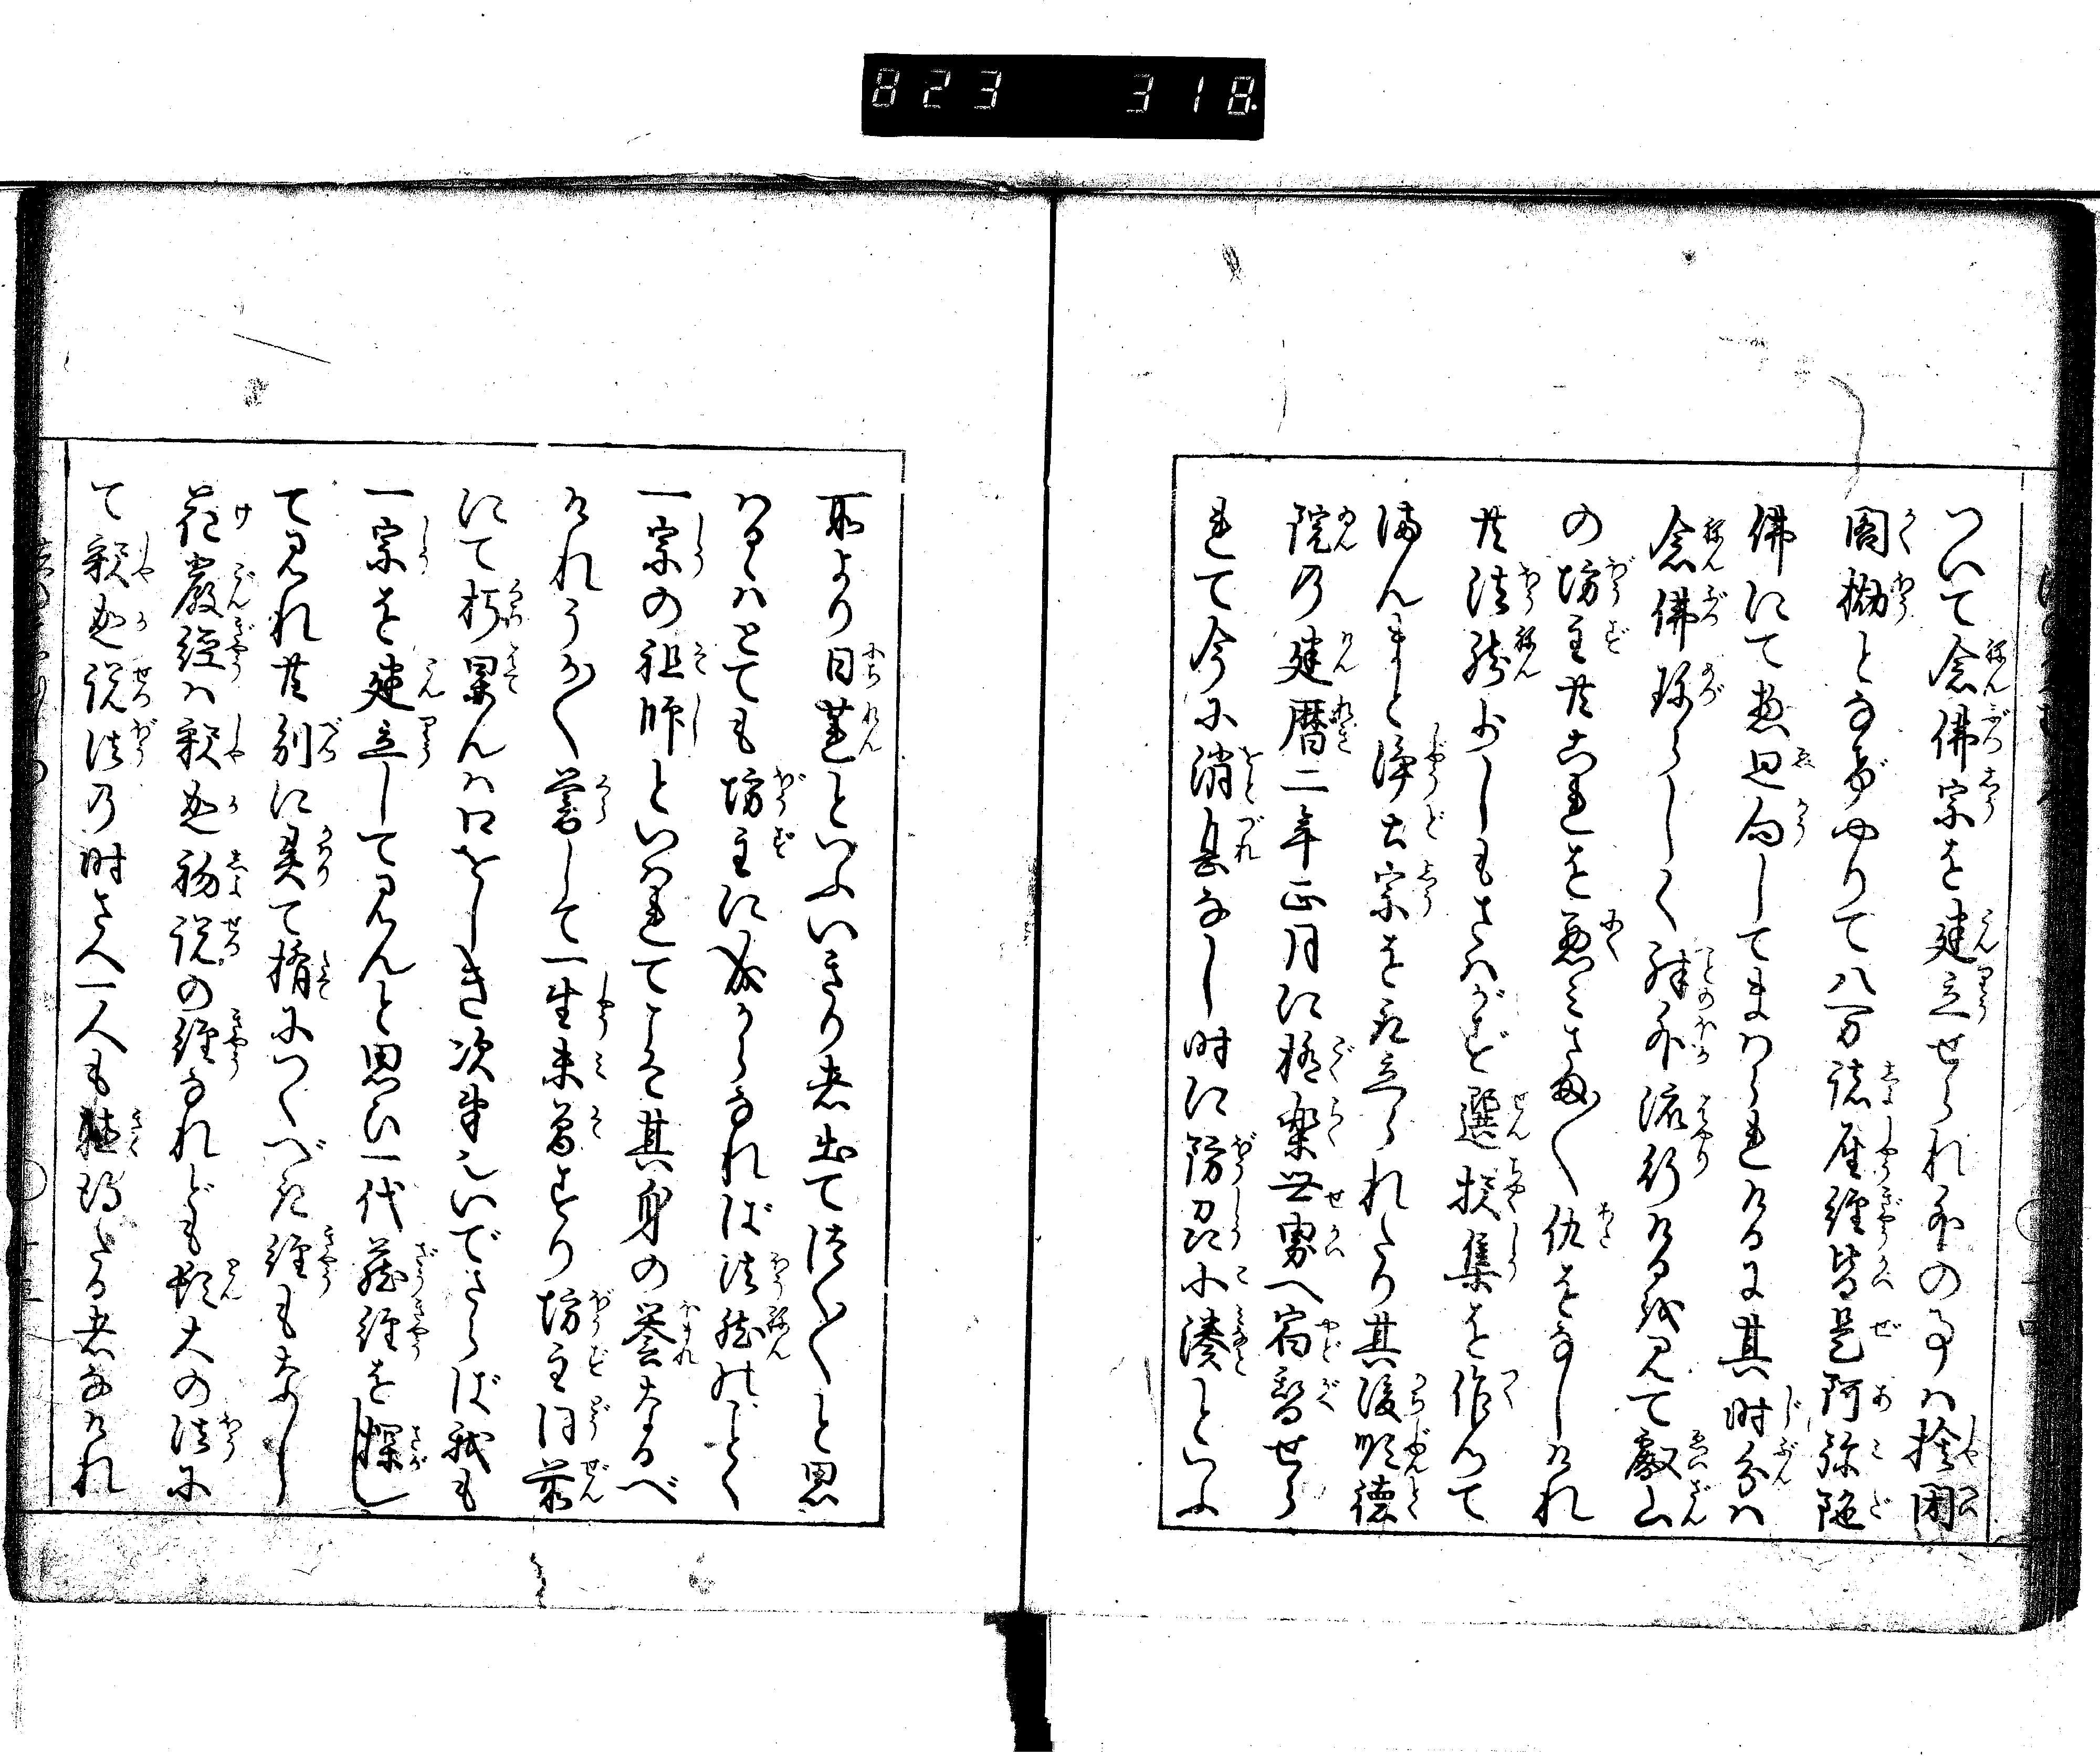 823 318
ついて念佛宗を建立せられ外の事ハ捨閉
閣抛となげやりて八万諸聖経皆是阿弥陀
佛にて悉回向してまハられけるに其時分ハ
念佛珎らしく殊外流行ける
我見て叡山
の坊主共これを悪ミさま〳〵仇をなしけれ
共法然少しもさハがず選挍集を作つて
浄土宗を立られたり其後順徳
院乃建暦二年正月に極楽世界へ宿替せら
れて今に消息なし時に防州小湊といふ
所より日蓮といふいきり者出てつく〳〵と思
ハるゝハとても坊主に成からなれば法然のごとく
一宗の祖師といハれてこそ其身の誉なるべ
けれうか〳〵
して一生未曽すり坊主同前
にて朽果んハ口をしき次第いでさらば我も
一宗を建立して見んと思ひ一代蔵経を探し
て見れ共別に異て
につくべき経もなし
花嚴経ハ釈迦初説の経なれども頓大の法に
て釈迦説法乃時さへ一人も聴得たる者なけれ